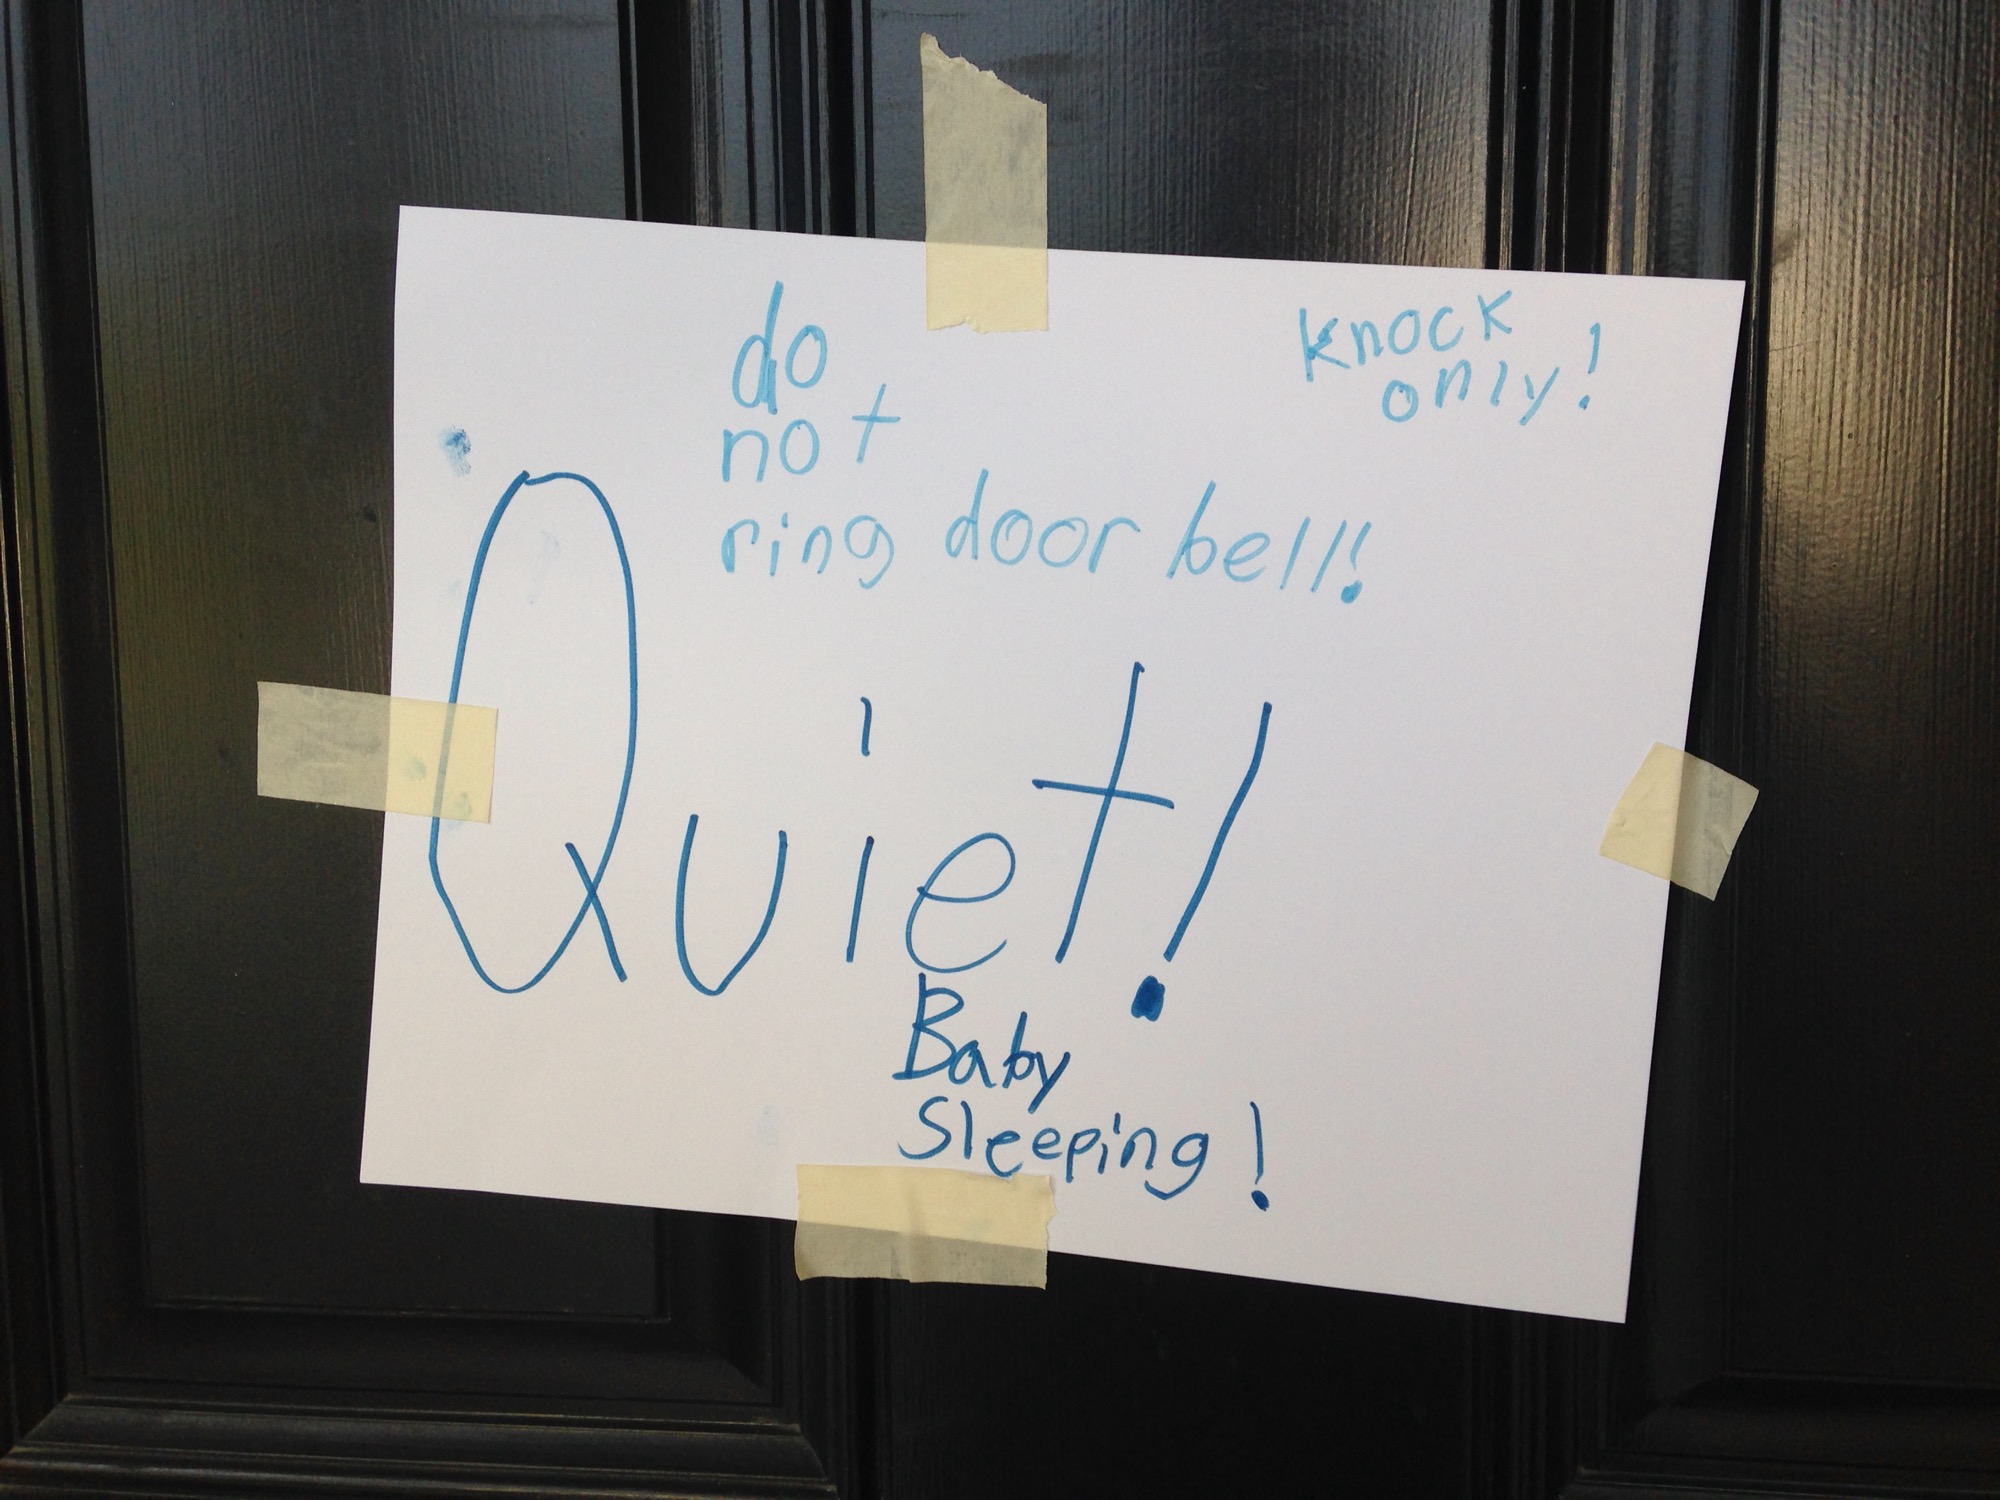 do
not
ring door bell!
knock
only!
Quiet!
Baby
Sleeping!